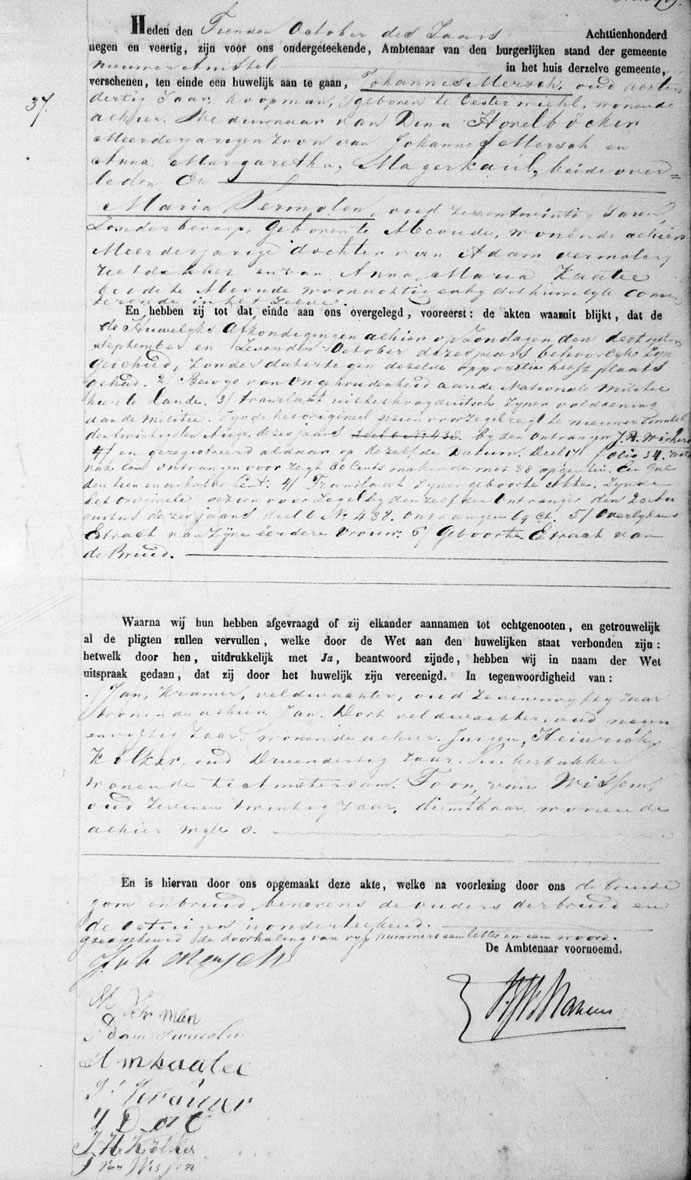 37.
Heden den Tienden October des Jaars Achttienhonderd
negen en veertig, zijn voor ons ondergeteekende, Ambtenaar van den burgerlijken stand der gemeente
Nieuwer Amstel in het huis derzelve gemeente,
verschenen, ten einde een huwelijk aan te gaan, Johannes Mersch, oud
dertig Jaar, koopman, geboren te wonende
alhier. Weduwnaar van Dina
Meerderjarigen Zoon van Johannes Mersch en
Anna Margaretha, Magerkaul, beide over-
leden En
Maria Vermolen, oud Zesentwintig Jaren
Zonder beroep, Geboren te Abcoude, wonende alhier
Meerderjarige dochter van Adam Vermolen
en van Anna Maria Kaatee
beide te Abcoude woonachtig en bij dit huwelijk
in het Zelve.
En hebben zij tot dat einde aan ons overgelegd, vooreerst: de akten waaruit blijkt, dat de
de Huwelijks Afkondigingen alhier op Zondagen den dertigsten
September en Zevenden October dezes jaars behoorlijk zijn
geschied, zonder dat er tegen dezelve oppositie heeft plaats
gehad. 2/ Bewys van Ongehoudenheid aan de Nationale Militie
hier te Lande. 3/ Translaat
aan de Militie. Zynde het origineel voor Zegel te Nieuwer Amstel
den dezes jaars by den Ontvanger
4/ en geregistreerd aldaar op dezelfde Datum. Deel folio 34.
ontvangen voor regt 80 Cents makende met 38 opcenten. Een Gul
den tien en een halve Cent. 4/ Translaat Zyner geboorte Akte. Zynde
het Origineele voor Zegel by den zelfden Ontvanger den
dezes jaars deel 6 No 438. Ontvangen 69 Ct. 5/ Overlydens
Extract van Zyne eerdere Vrouw. 6/ Geboorte Extract van
de Bruid.
Waarna wij hun hebben afgevraagd of zij elkander aannamen tot echtgenooten, en getrouwelijk
al de pligten zullen vervullen, welke door de Wet aan den huwelijken staat verbonden zijn:
hetwelk door hen, uitdrukkelijk met Ja, beantwoord zijnde, hebben wij in naam der Wet
uitspraak gedaan, dat zij door het huwelijk zijn vereenigd. In tegenwoordigheid van:
Jan, Kramer, veldwachter, oud Zevenenvyftig Jaar
Wonende alhier. Jan Dort veldwachter, oud negen
envyftig Jaar, wonende alhier. Jurgen, Heinrich,
Kölker, oud Drieendertig Jaar.
wonende te Amsterdam. Toon, van Wissen,
oud Zevenen twintig Jaar, dienstbaar wonende
alhier
En is hiervan door ons opgemaakt deze akte, welke na voorlezing door ons de bruide
gom en bruid, benevens de ouders der bruid en
de getuigen is onderteekend.
goedgekeurd de doorhaling van vyf nummers een letter en een woord.
De Ambtenaar voornoemd.
Joh Mersch
Adam Vermolen
A M Kaatee
J Kramer
J Dort
J H Kölker
T van Wissen